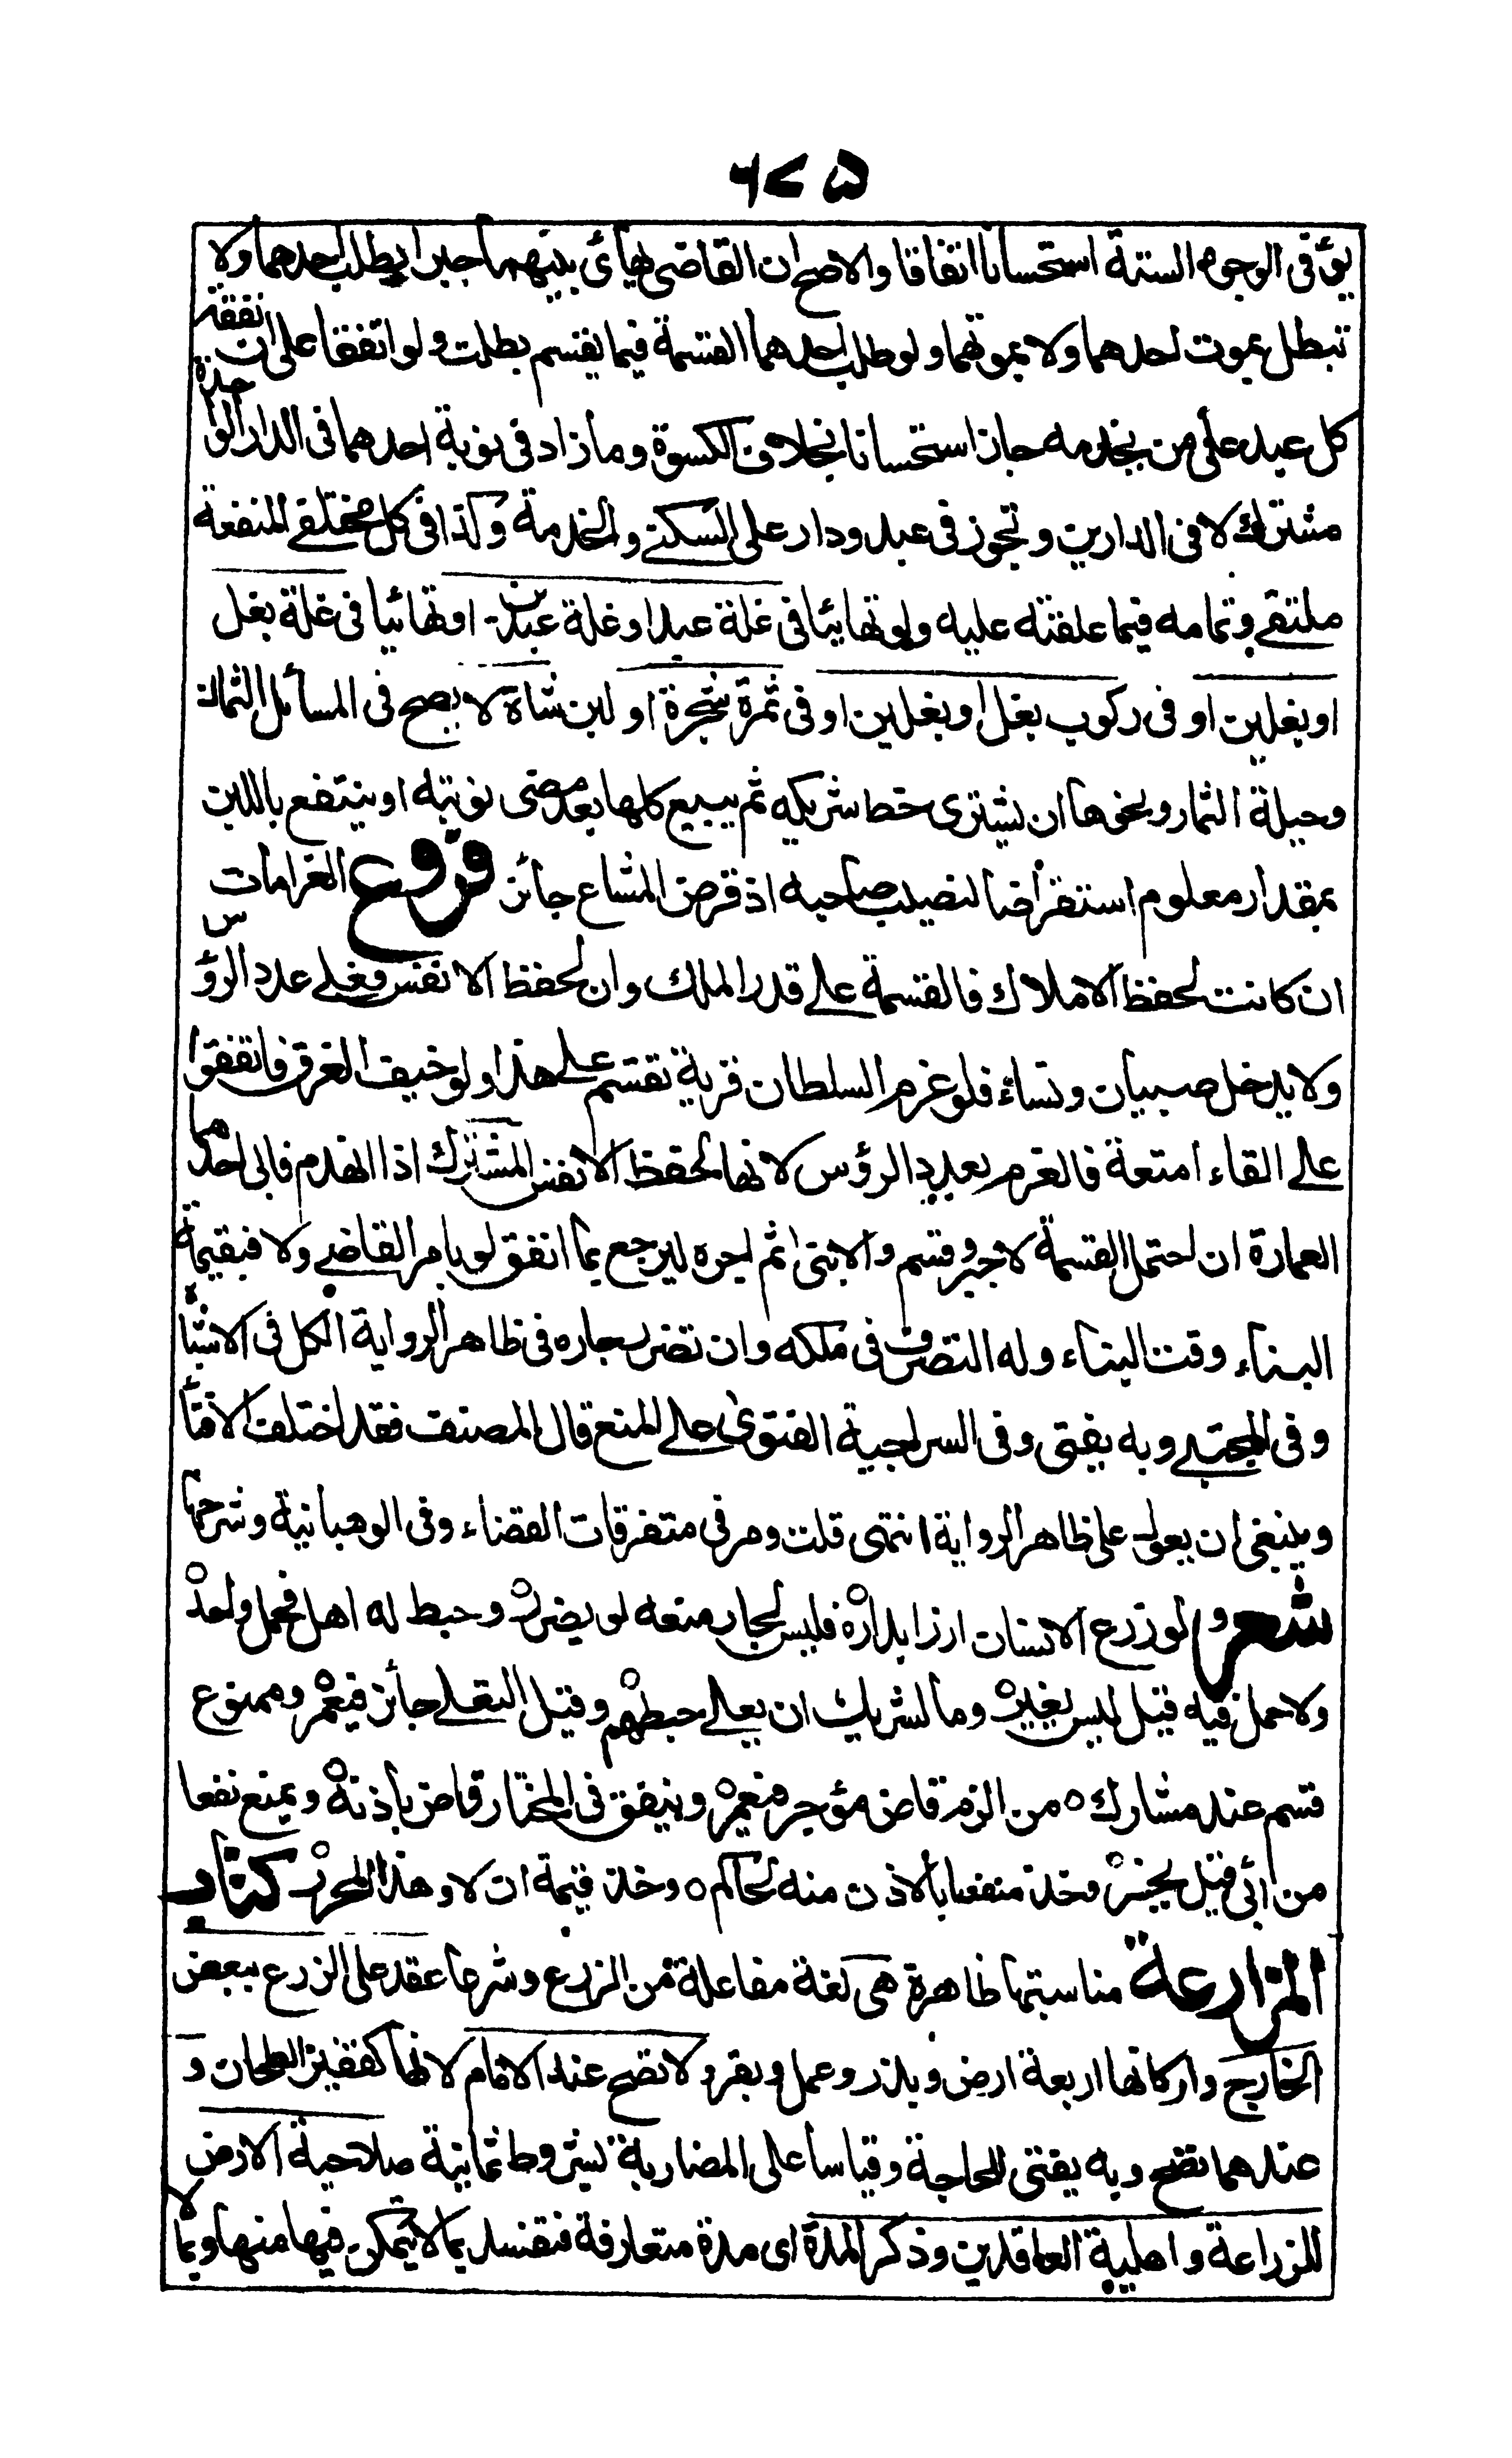 ٥٧٦
يؤ فى الوجوه الستة استحسانا اتفاقا والاصح ان القاضى يهائ بينهما جبرا بطلب احدهما ولا
تبطل بموت احدهما ولا بموتهما ولو طلب احدهما القسمة فيما يقسم بطلت ولو اتفقا على ان نفقة
كل عبد على من يخدمه جاز استحسانا بخلاف الكسوة وما زاد فى نوبة احدهما فى الدار الواحدة
مشترك لا فى الدارين وتجوز فى عبد ودار على السكنے والخدمة وكذا فى كل مختلفے المنفعة
ملتقے وتمامه فيما علقته عليه ولو تهايئا فى غلة عبد او غلة عبدين او تهائيا فى غلة بغل
او بغلين او فى ركوب بغل او بغلين او فى ثمرة شجرة او لبن شاة لا يصح فى المسائل الثمان
وحيلة الثمار ونحوها ان يشترى حظ شريكه ثم يبيع كلها بعد مضى نوبته او ينتفع باللبن
بمقدار معلوم استقراضا لنصيب صاحبه اذ قرض المشاع جائز فروع الغرامات
ان كانت لحفظ الاملاك فالقسمة علے قدر الملك وان لحفظ الانفس فعلے عدد الرؤس
ولا يدخل صبيان ونساء فلو غرم السلطان قرية تقسم علے هذا ولو خيف الغرق فاتفقوا
علے القاء امتعة فالغرم بعدد الرؤس لانها لحفظ الانفس المشترك اذا انهدم فابى احدهما
العمارة ان احتمل القسمة لا جبر وقسم والا بنى ثم اجره ليرجع بما انفق لو بامر القاضے ولا فبقيمة
البناء وقت البناء وله التصرف فى ملكه وان تضرر جاره فى ظاهر الرواية الكل فى الاشباه
وفى المجتبے وبه يفتى وفى السراجية الفتوى علے المنع قال المصنف فقد اختلف الافتاء
وينبغى ان يعول على ظاهر الرواية انتهى قلت ومر فى متفرقات القضاء وفى الوهبانية وشرحها
شعر ولو زرع الانسان ارزا بداره فليس لجار منعه لو يضرر وحيط له اهل فحمل واحد
ولا حمل فيه قيل ليس يغير وما لشريك ان يعلے حيطهم وقيل التعلے جائز فيعمر وممنوع
قسم عند مشارك ٥ من الزم قاض مؤجر فيعمر وينفق فى المختار قاض باذنه ويمنع نفعا
من ابى قبل يخسر وخذ منفعا بالاذن منه لحاكم ٥ وخذ قيمة ان لا وهذا المحرر كتاب
المزارعة مناسبتها ظاهرة هى لغة مفاعلة من الزرع وشرعا عقد على الزرع ببعض
الخارج واركانها اربعة ارض وبذر وعمل وبقر ولا تصح عند الامام لانها كقفيز الطحان و
عندهما تصح وبه يفتى للحاجة وقياسا على المضاربة بشروط ثمانية صلاحية الارض
للزراعة واهلية العاقدين وذكر المدة اى مدة متعارفة فتفسد بما لا يتمكن فيها منها وبما لا